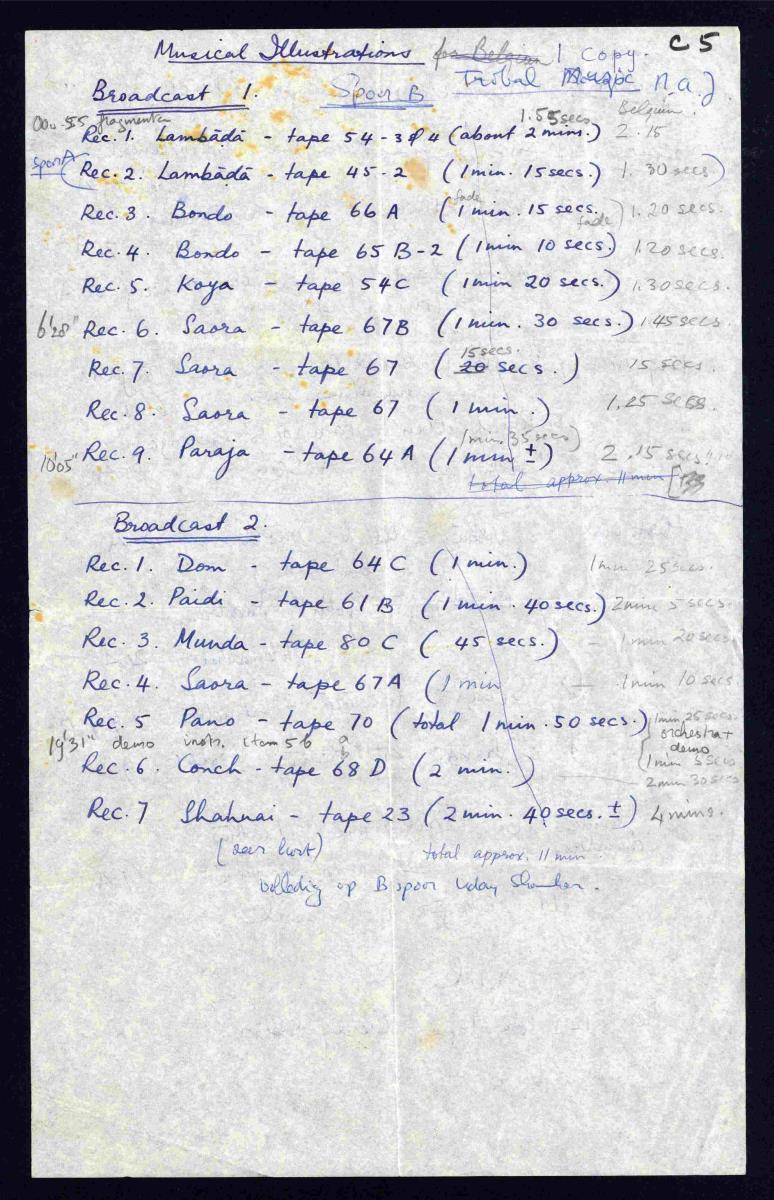 Musical Illustrations for Belgium 1 Copy. C5
Tribal Mozaïc N.a.J
Broadcast 1. Spoor B
Belgium.
00-55 fragmenten 1.55 secs
Rec. 1. Lambādā - tape 54-3&4 (about 2 mins.) 2.15
spoor A Rec. 2. Lambādā - tape 45-2 (1 min. 15 secs.) 1.30 secs.
fade
Rec. 3. Bondo - tape 66 A (1 min. 15 secs.) 1.20 secs.
fade
Rec. 4. Bondo - tape 65 B-2 (1 min 10 secs.) 1.20 secs.
Rec. 5. Koya - tape 54C (1 min 20 secs.) 1.30 secs.
6'28" Rec. 6. Saora - tape 67B (1 min. 30 secs.) 1.45 secs.
15 secs.
Rec. 7. Saora - tape 67 (20 secs.) 15 secs.
Rec. 8. Saora - tape 67 (1 min.) 1.25 secs.
1 min. 35 secs)
10'05" Rec. 9. Paraja - tape 64 A (1 min ±) 2.15 secs!!
total approx. 11 min
Broadcast 2.
Rec. 1. Dom - tape 64 C (1 min.) 1 min 25 secs.
Rec. 2. Paidi - tape 61 B (1 min. 40 secs.) 2 min 5 secs.
Rec. 3. Munda - tape 80 C (45 secs.) - 1 min 20 secs.
Rec. 4. Saora - tape 67A (1 min — 1 min 10 secs
Rec. 5 Pano - tape 70 (total 1 min. 50 secs.) 1 min 25 secs.
orchestra +
19'31" demo instr. item 5 b a demo
b 1 min 5 secs
Rec. 6. Conch - tape 68 D (2 min.) 2 min 30 secs
Rec. 7 Shahnai - tape 23 (2 min. 40 secs. ±) 4 mins.
(zeer kort) total approx. 11 min.
volledig op B spoor Uday Shankar.